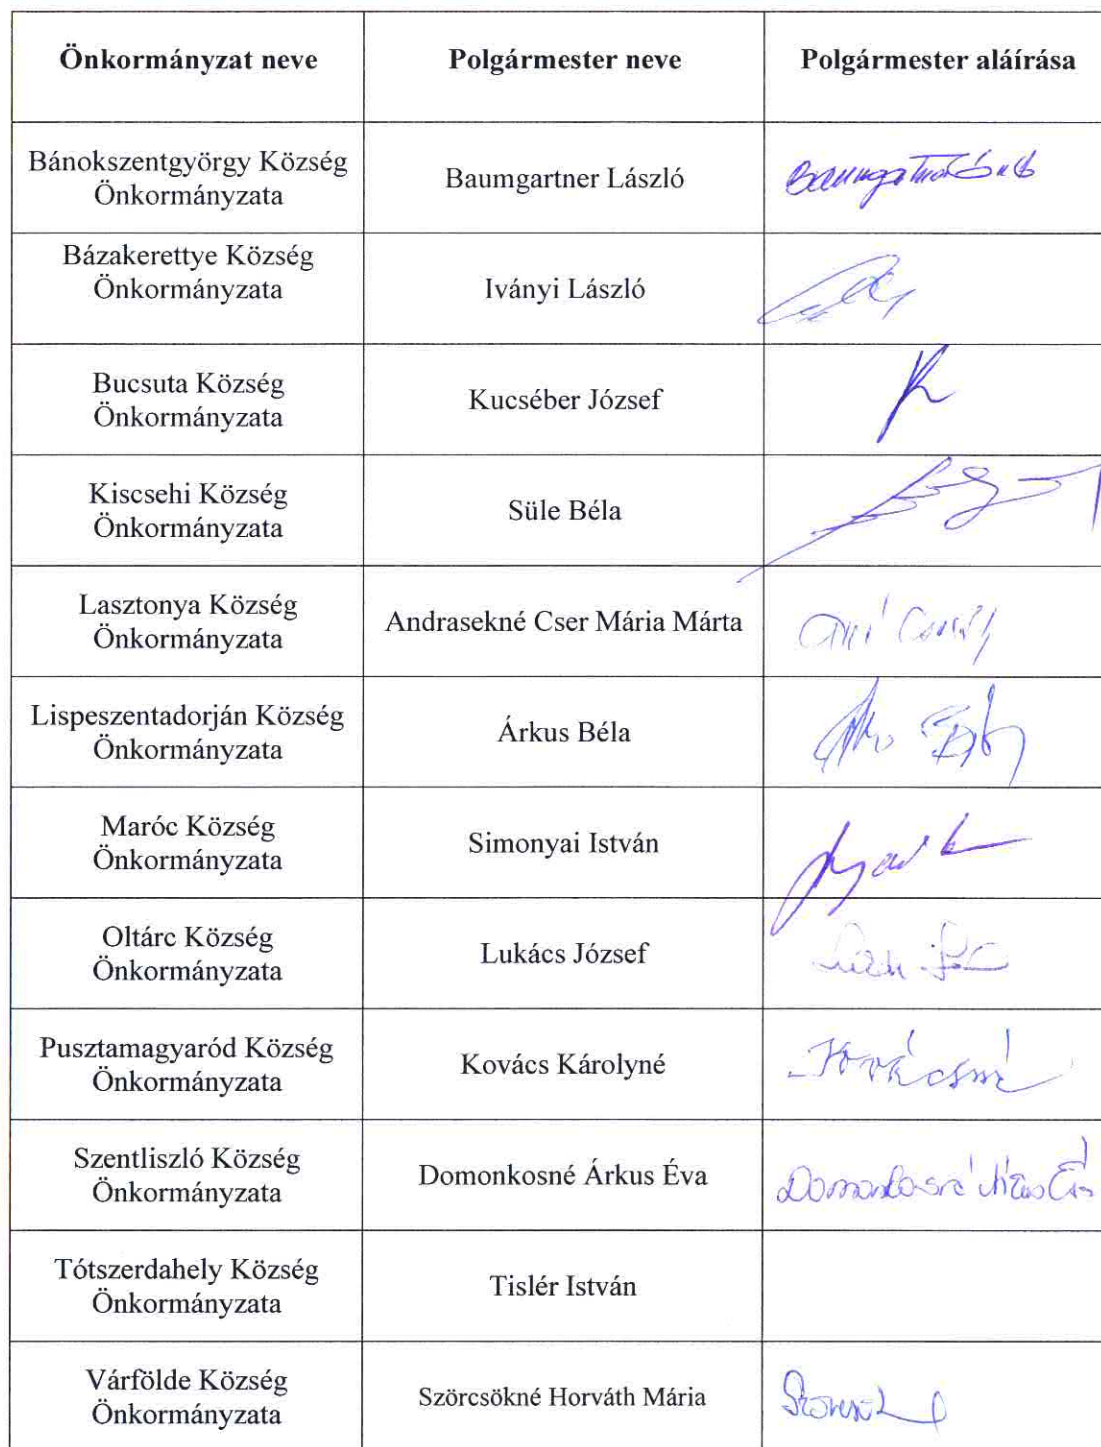 Önkormányzat neve
Polgármester neve
Polgármester aláírása
Bánokszentgyörgy Község
Önkormányzata
Baumgartner László
Bázakerettye Község
Önkormányzata
Iványi László
Bucsuta Község
Önkormányzata
Kucséber József
Kiscsehi Község
Önkormányzata
Süle Béla
Lasztonya Község
Önkormányzata
Andrasekné Cser Mária Márta
Lispeszentadorján Község
Önkormányzata
Árkus Béla
Maróc Község
Önkormányzata
Simonyai István
Oltárc Község
Önkormányzata
Lukács József
Pusztamagyaród Község
Önkormányzata
Kovács Károlyné
Kovácsné
Szentliszló Község
Önkormányzata
Domonkosné Árkus Éva
Domonkosné Árkus Éva
Tótszerdahely Község
Önkormányzata
Tislér István
Várfölde Község
Önkormányzata
Szörcsökné Horváth Mária